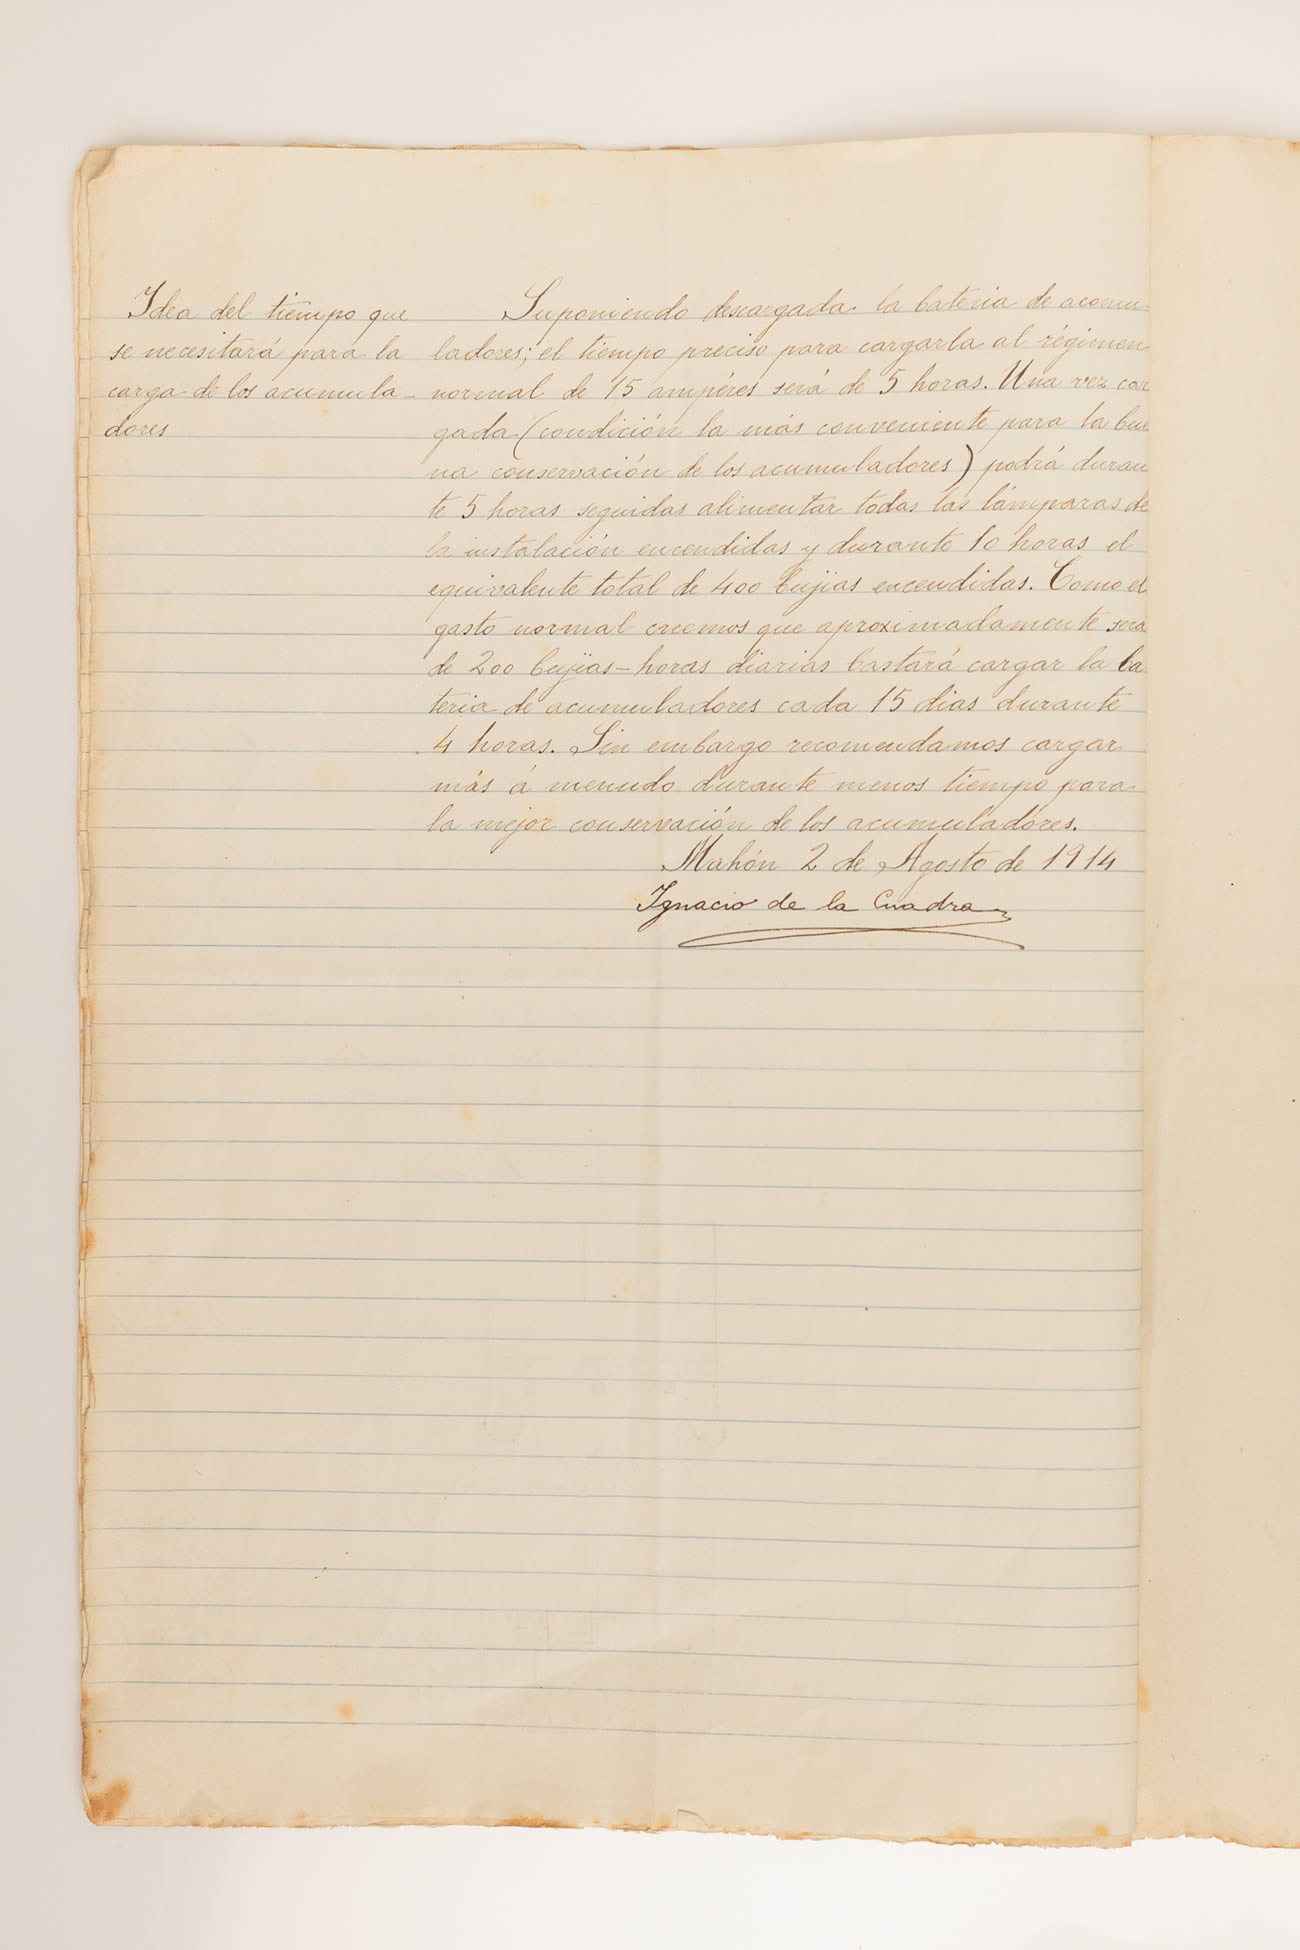 Idea del tiempo que
se necesitará para la
carga de los acumula-
dores
Suponiendo descargada la bateria de acumu-
ladores; el tiempo preciso para cargarla al régimen
normal de 15 ampéres será de 5 horas. Una vez car
gada (condición la más conveniente para la bue
na conservación de los acumuladores) podrá duran
te 5 horas seguidas alimentar todas las lámparas de
la instalación encendidas y durante 10 horas el
equivalente total de 400 bujias encendidas. Como el
gasto normal creemos que aproximadamente será
de 200 bujias-horas diarias bastará cargar la ba
teria de acumuladores cada 15 dias durante
4 horas. Sin embargo recomendamos cargar
más á menudo durante menos tiempo para
la mejor conservación de los acumuladores.
Mahón 2 de Agosto de 1914
Ignacio de la Cuadra